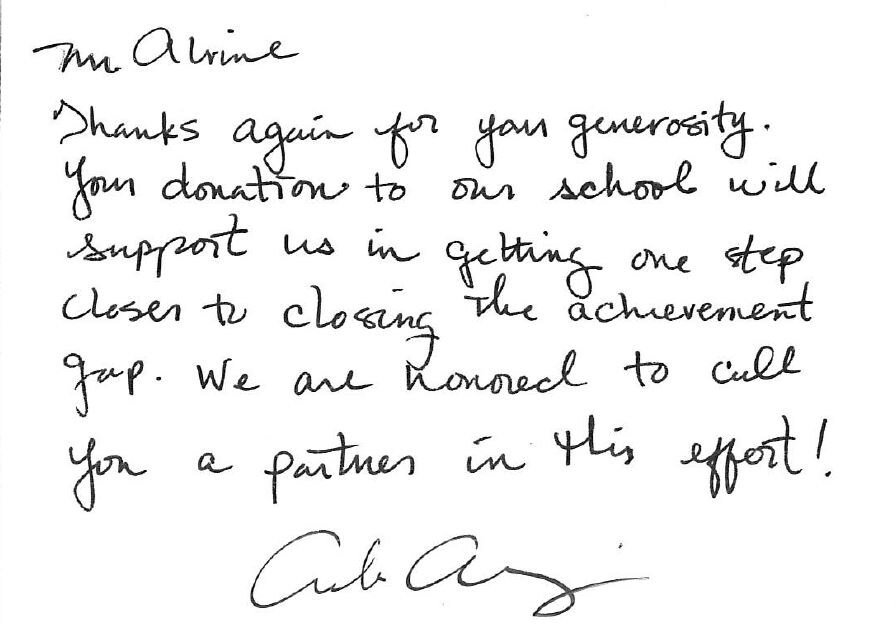 Mr. Alvine
Thanks again for your generosity.
Your donation to our school will
support us in getting one step
closer to closing the achievement
gap. We are honored to call
you a partner in this effort!